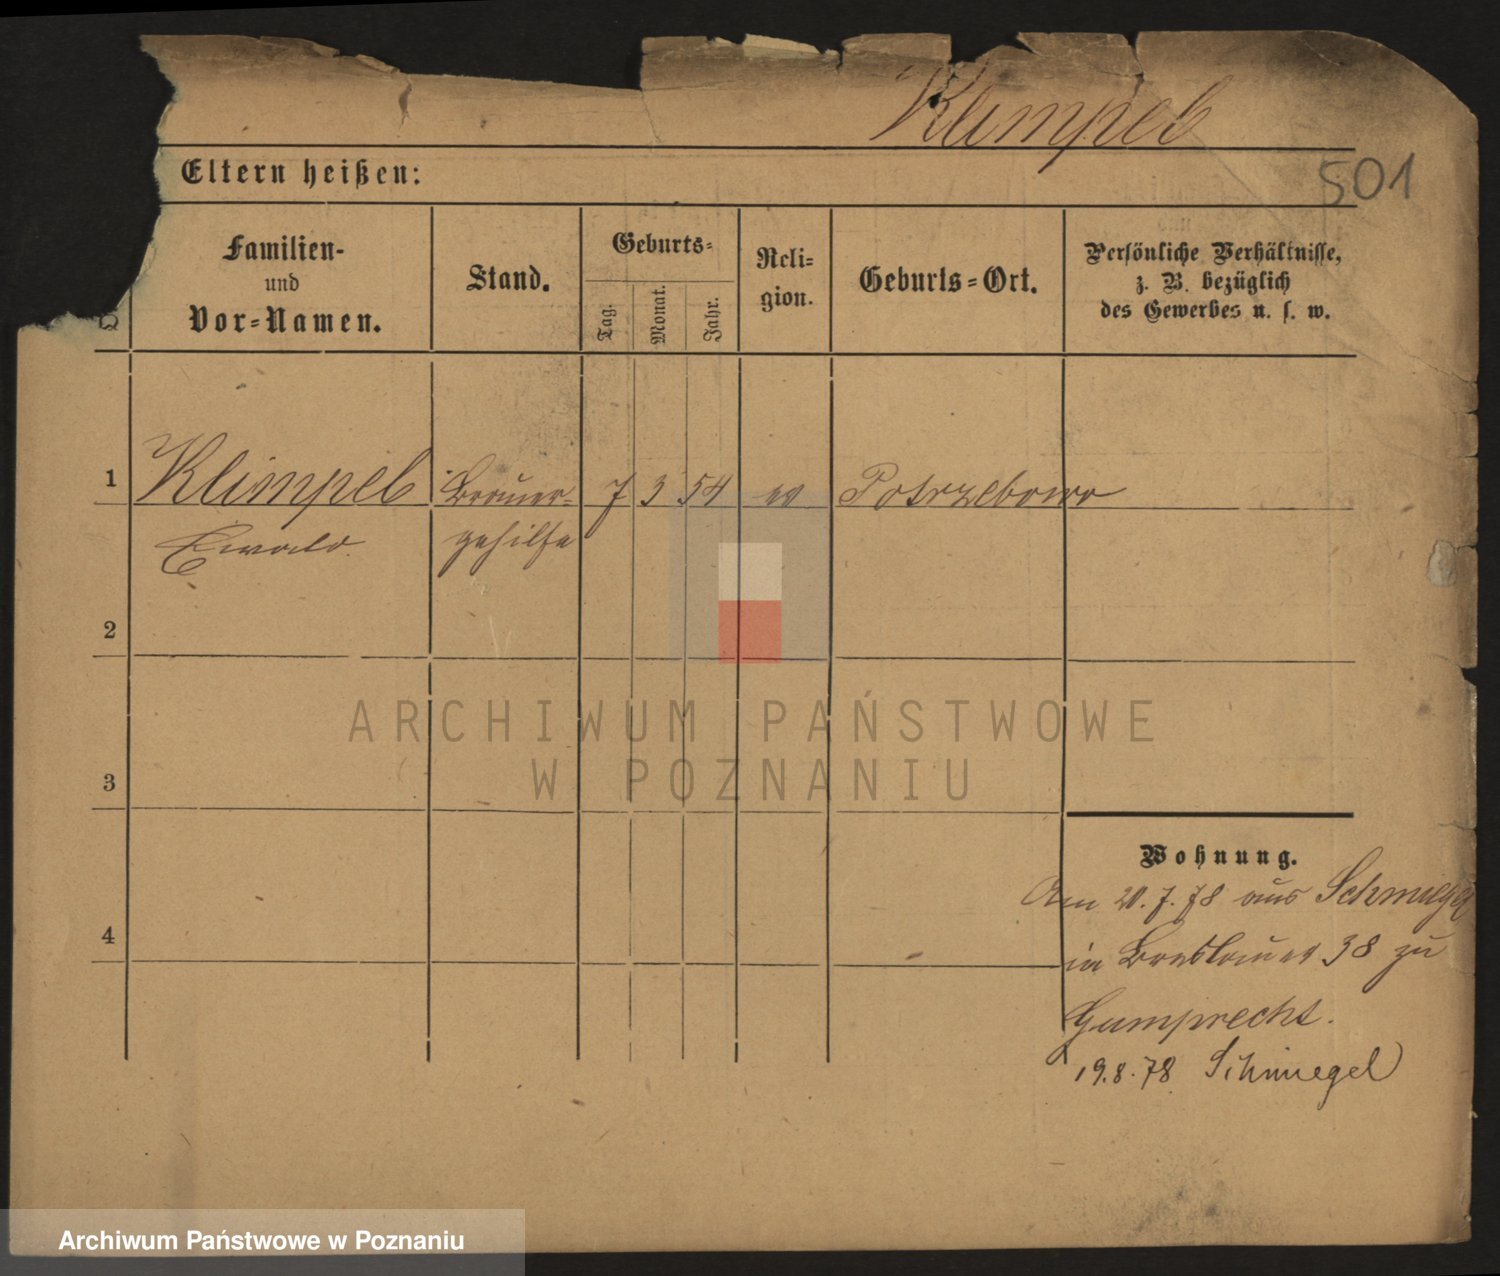 Klimpel
501
Eltern heißen:
Familien-
und
Vor-Namen.
Stand.
Geburts-
Tag.
Monat.
Jahr.
Reli-
gion.
Geburts-Ort.
Persönliche Verhältnisse,
z. B. bezüglich
des Gewerbes u. s. w.
1
Klimpel Brauer- 7 3 54 ev Potrzebowo
Ewald. gehilfe
2
3
4
Wohnung.
Am 20.7.78 aus Schmiegel
in Breslauer 38 zu
Gumprecht.
19.8.78 Schmiegel
ARCHIWUM PAŃSTWOWE
W POZNANIU
Archiwum Państwowe w Poznaniu